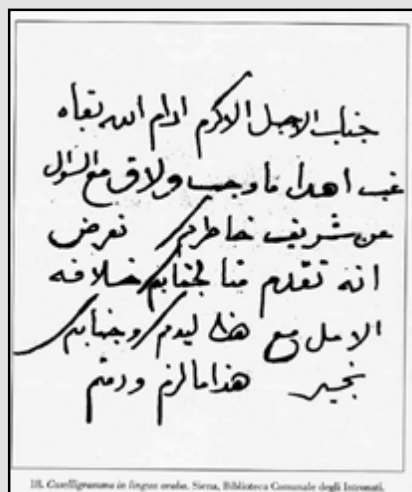 جناب الاجل الاكرم ادام الله بقاه
غب اهدا ما وجب ولاق مع السوال
عن شريف خاطركم نعرض
انه تقدم منا لجنابكم خلافه
الامل مع هذا ليدكم وجنابكم
بخير هذا ما لزم ودمتم
18. Calligramma in lingua araba. Siena, Biblioteca Comunale degli Intronati.